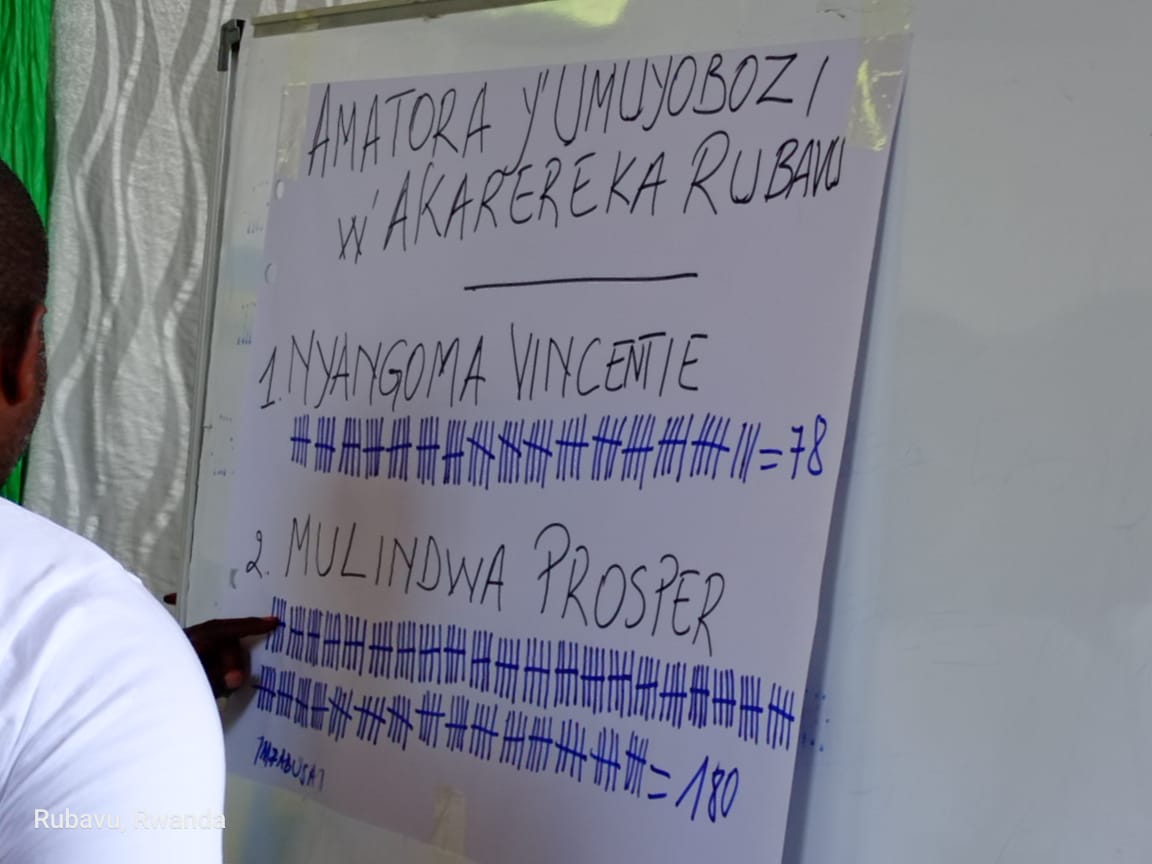 AMATORA Y'UMUYOBOZI
W'AKAREREKA RUBAVU
1. NYANGOMA VINCENTIE
= 78
2. MULINDWA PROSPER
= 180
IMFABUSA 1
Rubavu, Rwanda